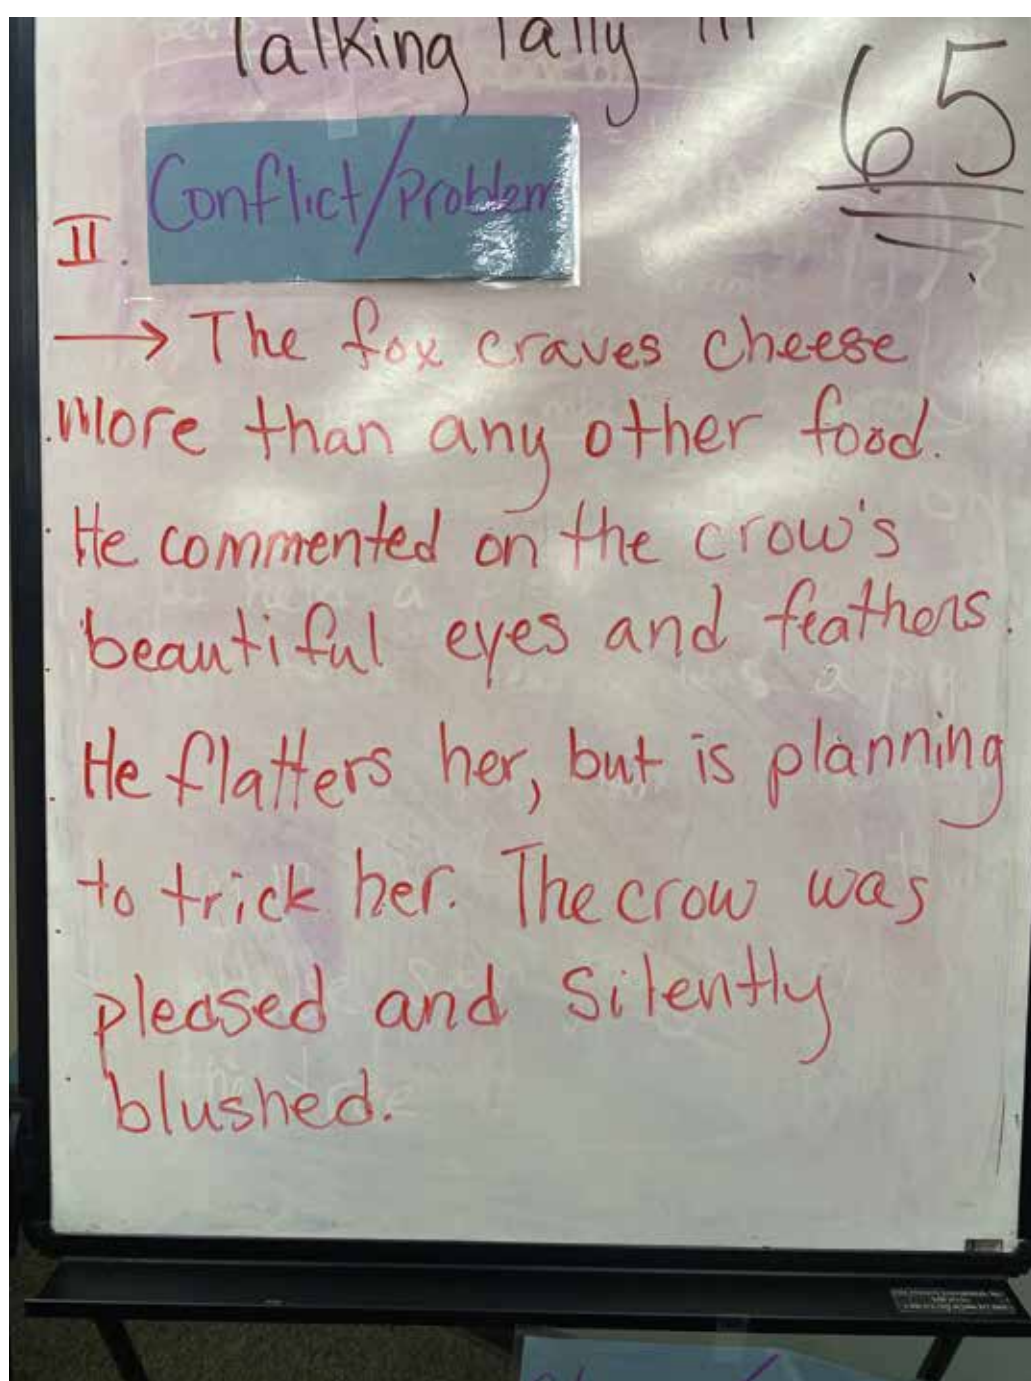 Talking Tally III
65
Conflict/Problem
II.
→ The fox craves cheese
more than any other food.
He commented on the crow's
beautiful eyes and feathers.
He flatters her, but is planning
to trick her. The crow was
pleased and silently
blushed.